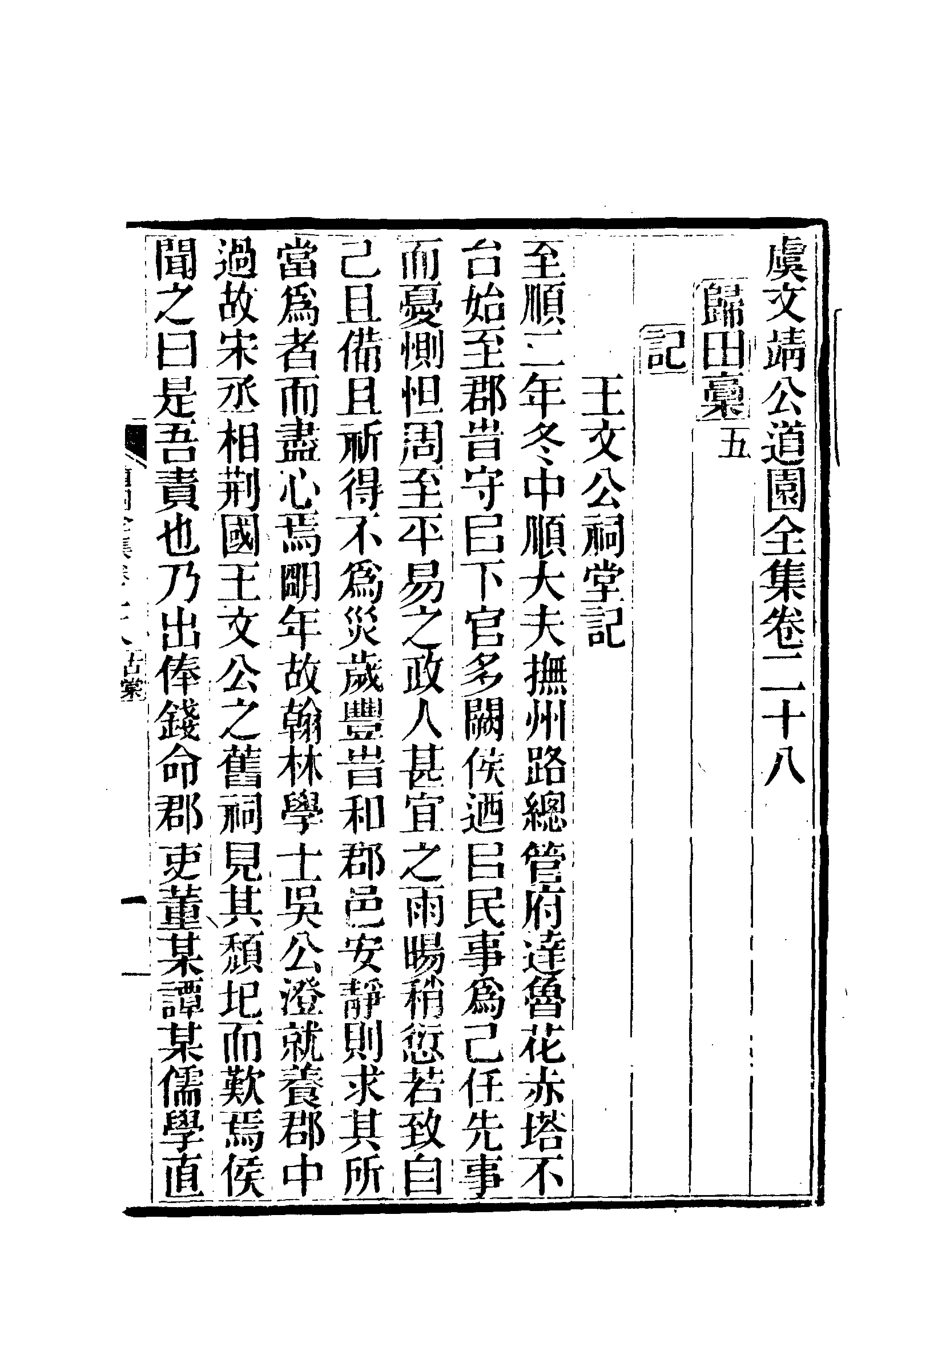 虞文靖公道園全集卷二十八
歸田稾五
記
王文公祠堂記
至順二年冬中順大夫撫州路總管府達魯花赤塔不
台始至郡旹守㠯下官多闕侯迺㠯民事爲己任先事
而憂惻怛周至平易之政人甚宜之雨暘稍愆若致自
己且備且祈得不爲災歲豐旹和郡邑安靜則求其所
當爲者而盡心焉朙年故翰林學士吳公澄就養郡中
過故宋丞相荆國王文公之舊祠見其頹圮而歎焉侯
聞之曰是吾責也乃出俸錢命郡吏董某譚某儒學直
古棠
一